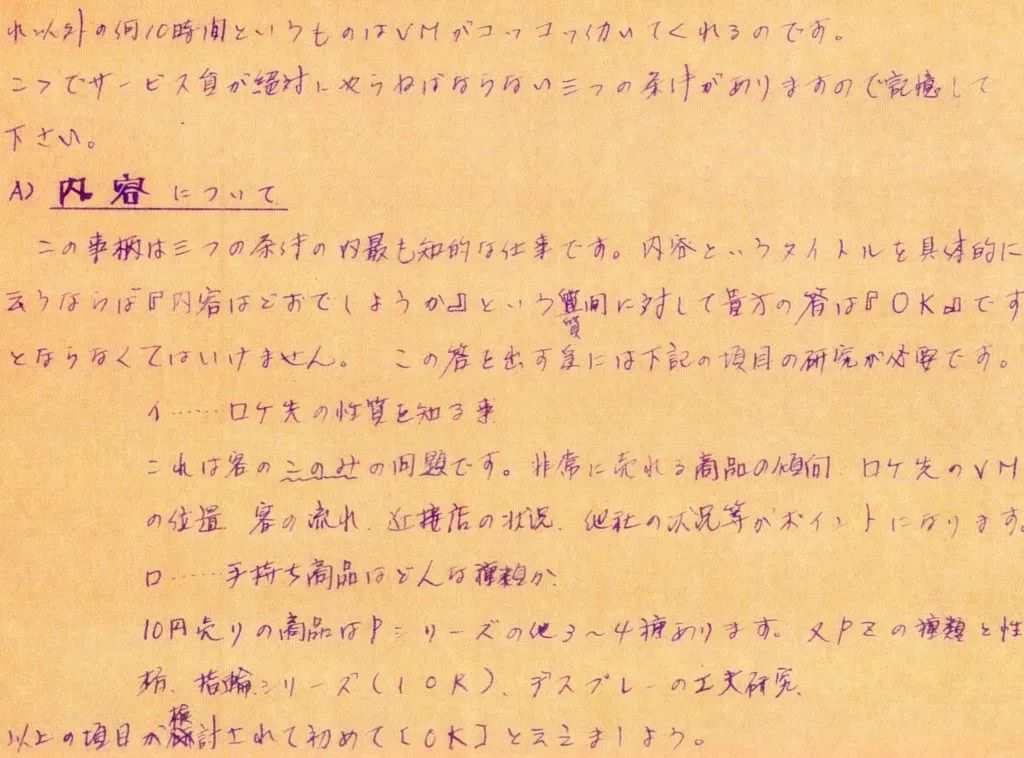 れ以外の何10時間というものはVMがコツコツ仂いてくれるのです。
こゝでサービス員が絶対にやらねばならない三つの条件がありますので記憶して
下さい。
A) 内容について
この事柄は三つの条件の内最も知的な仕事です。内容というタイトルを具体的に
云うならば『内容はどおでしようか』という質問に対して貴方の答は『OK』です
とならなくてはいけません。 この答を出す為には下記の項目の研究が必要です。
イ……ロケ先の性質を知る事
これは客のこのみの問題です。非常に売れる商品の傾向、ロケ先のVM
の位置、客の流れ、近接店の状況、他社の状況等がポイントになります。
ロ……手持ち商品はどんな種類か、
10円売りの商品はPシリーズの他3〜4種あります。又PZの種類と性
柄、指輪シリーズ(10K)、デスプレーの工夫研究、
以上の項目が検討されて初めて[OK]と云えましよう。